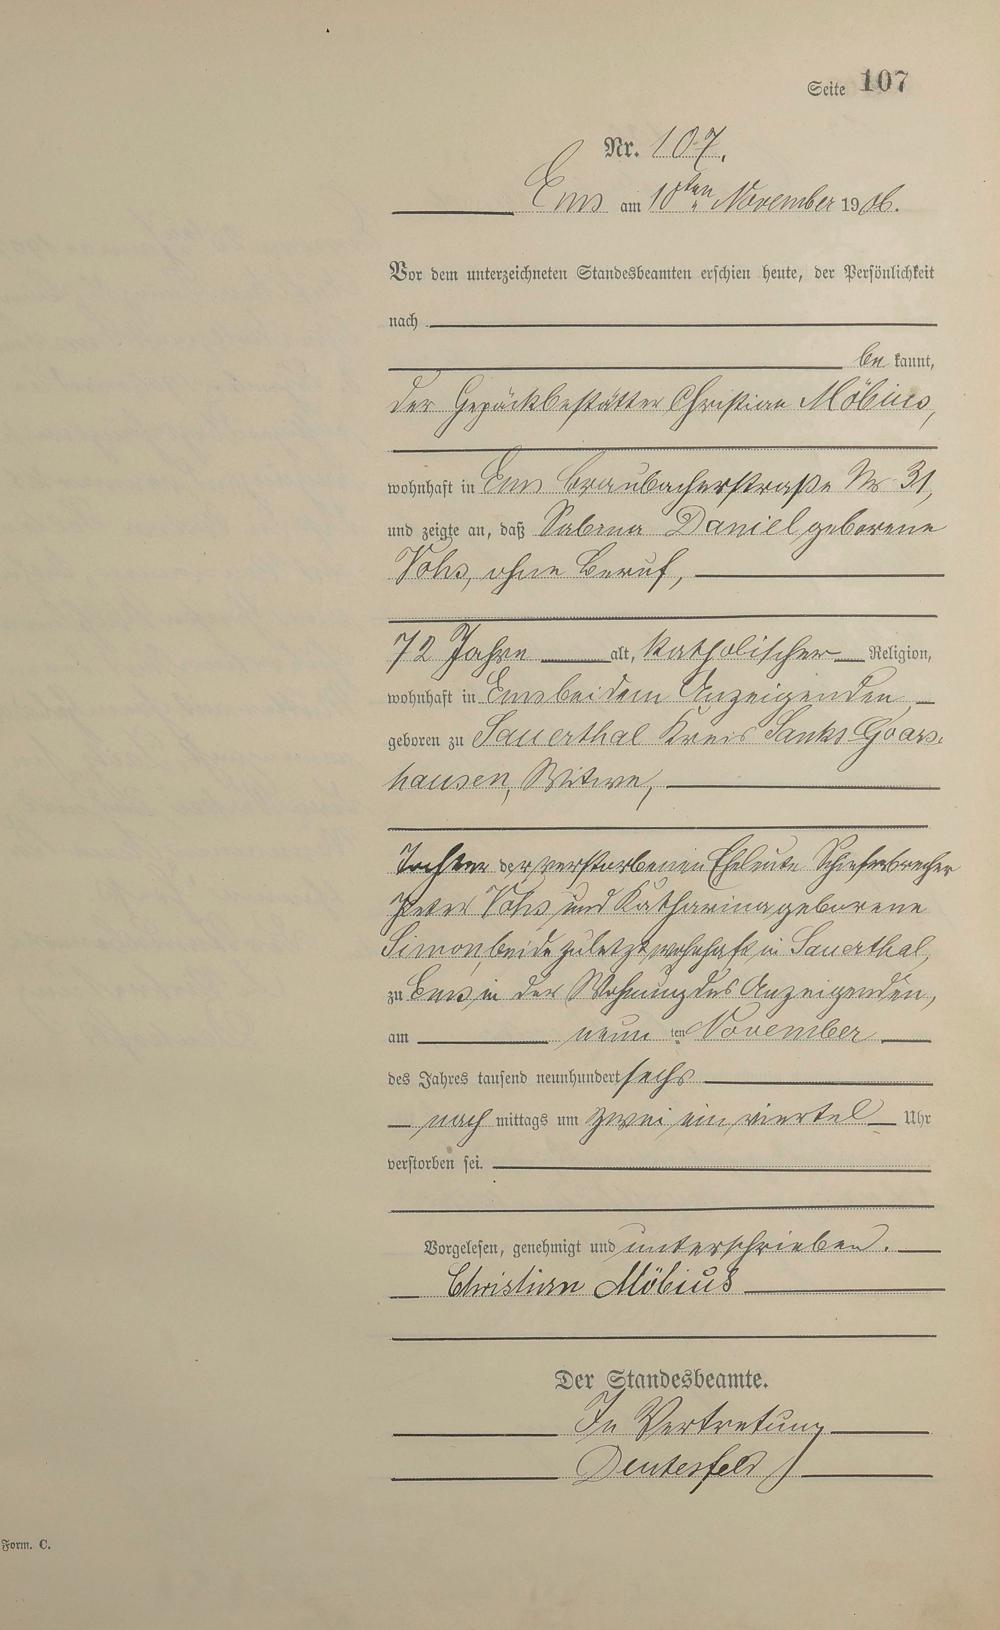 Seite 107
Nr. 107.
Ems am 10ten November 1906.
Vor dem unterzeichneten Standesbeamten erschien heute, der Persönlichkeit
nach
be kannt,
der Gepäckbestätter Christian Möbius,
wohnhaft in Ems Braubacherstraße Nr 31,
und zeigte an, daß Sabina Daniel geborene
Vohs, ohne Beruf,
72 Jahre alt, katholischer Religion,
wohnhaft in Ems bei dem Anzeigenden
geboren zu Sauerthal Kreis Sankt Goars-
hausen, Witwe,
Tochter der verstorbenen Eheleute Schieferbrecher
Peter Vohs und Katharina geborene
Simon, beide zuletzt wohnhaft in Sauerthal,
zu Ems in der Wohnung des Anzeigenden,
am neun ten November
des Jahres tausend neunhundert sechs
nach mittags um zwei ein viertel Uhr
verstorben sei.
Vorgelesen, genehmigt und unterschrieben.
Christian Möbius
Der Standesbeamte.
In Vertretung
Form. C.